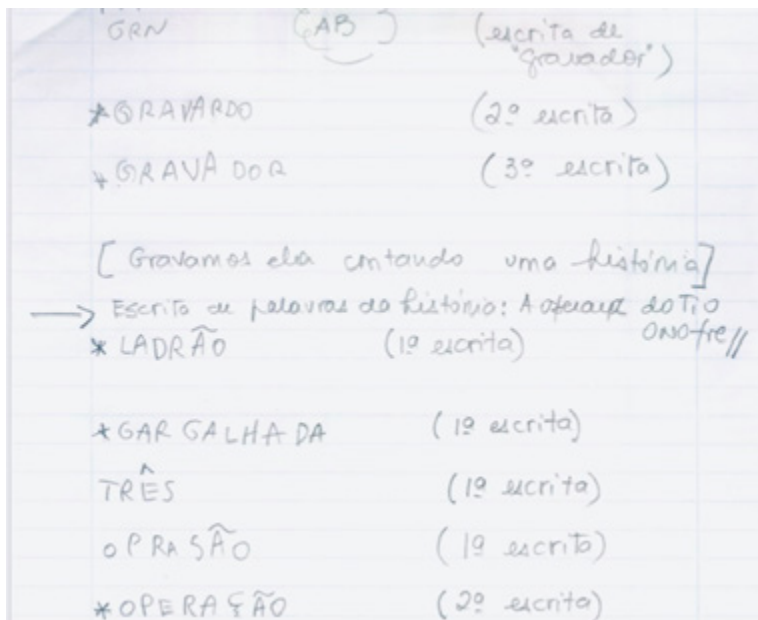 GRN (AB) (escrita de
"gravador")
*GRAVARDO (2ª escrita)
*GRAVADOR (3ª escrita)
[Gravamos ela contando uma história]
→ Escrita de palavras da história: A operação do Tio
Onofre//
*LADRÃO (1ª escrita)
*GARGALHADA (1ª escrita)
TRÊS (1ª escrita)
OPRASÃO (1ª escrita)
*OPERAÇÃO (2ª escrita)